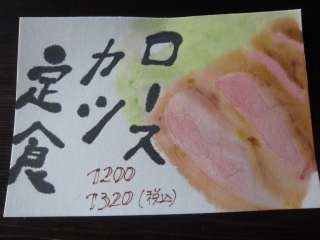 ロース
カツ
定食
1200
1320(税込)